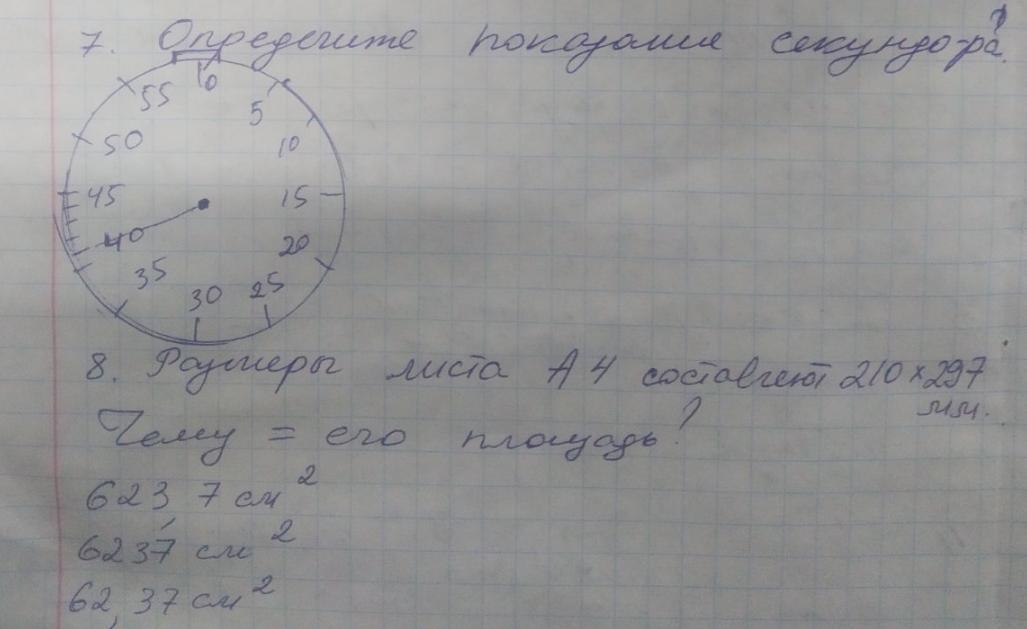 7. Определите показания секундо-ра?
0
55 5
50 10
45 15
40 20
35 25
30
8. Размеры листа А4 составляют 210×297
мм.
Чему = его площадь?
623,7 см²
6237 см²
62,37 см²